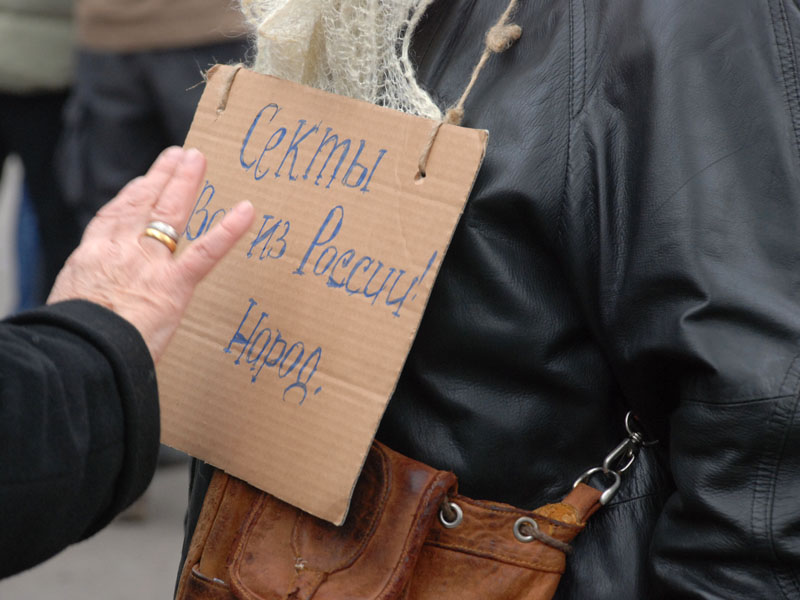 Секты
из России!
Народ.